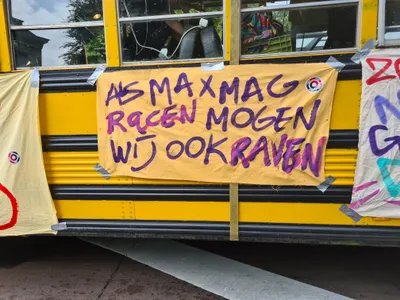 ALS MAX MAG
RACEN MOGEN
WIJ OOK RAVEN